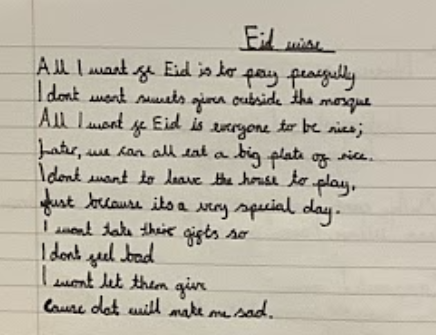 Eid wise
All I want ge Eid is to pray peacegully
I dont want sweets given outside the mosque
All I want ge Eid is everyone to be nice;
Later, we can all eat a big plate og rice.
I dont want to leave the house to play,
Just because its a very special day.
I wont take their gigts so
I dont geel bad
I wont let them give
Cause dat will make me sad.